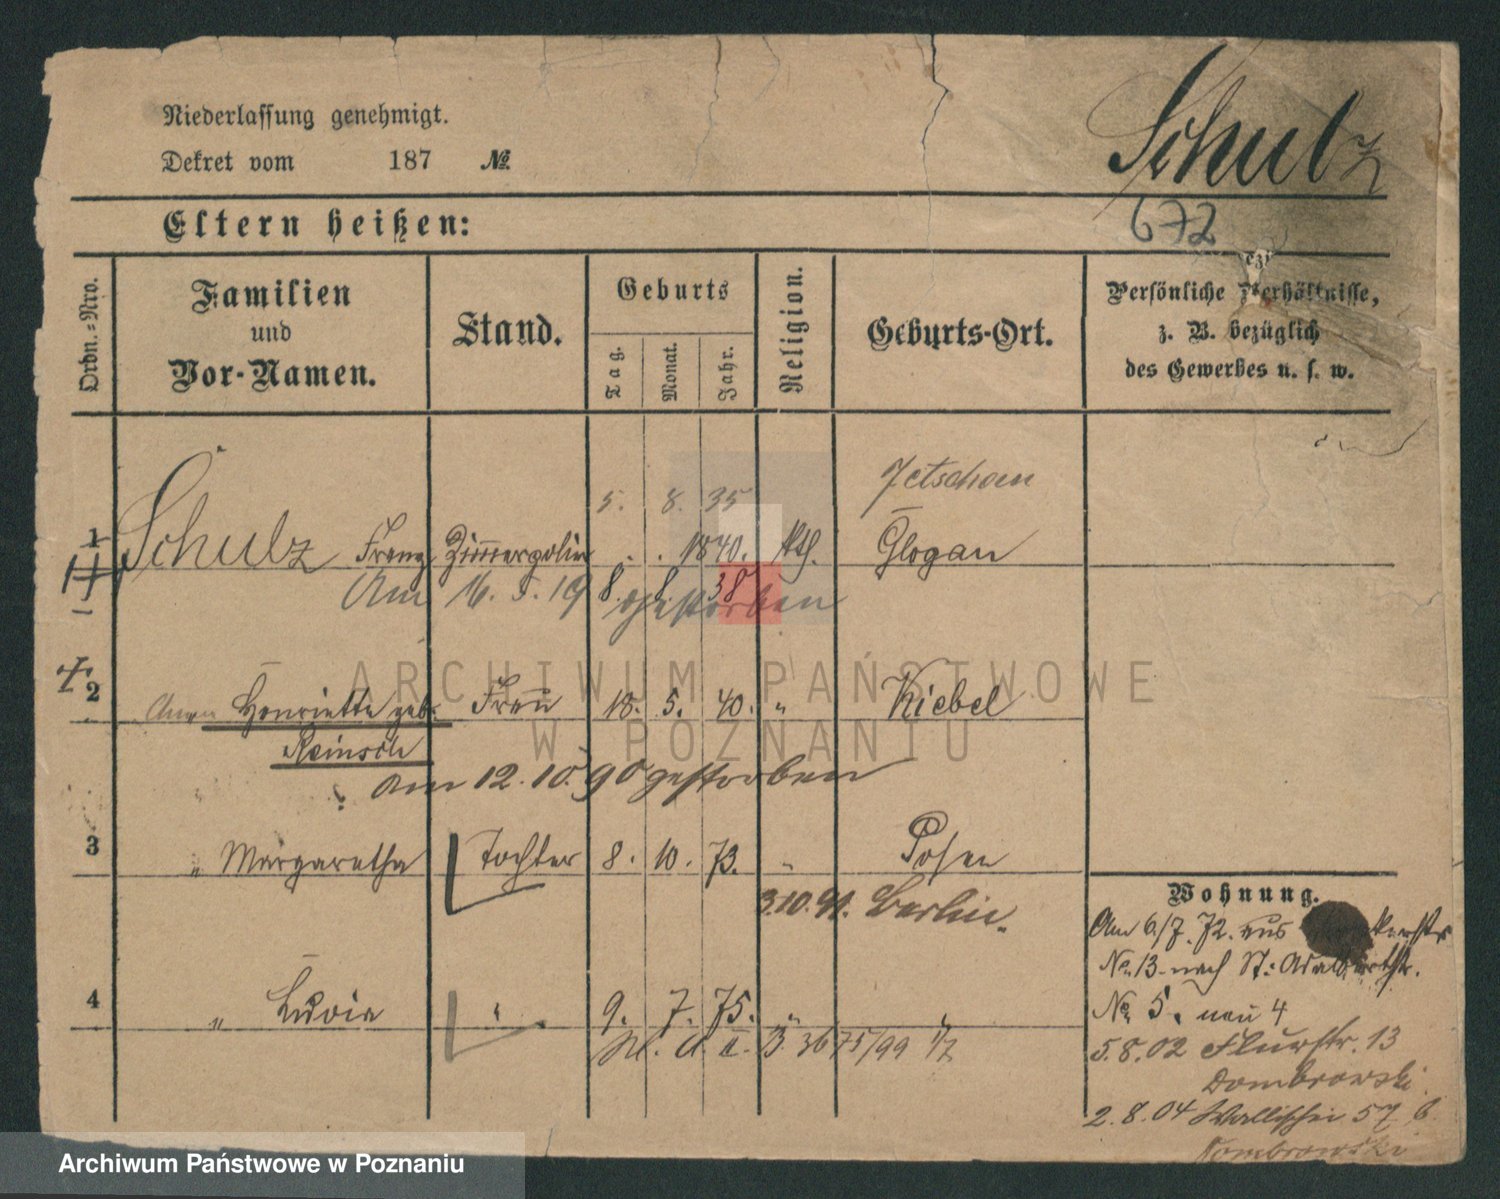 Niederlassung genehmigt.
Dekret vom 187 №
Schulz
672
Eltern heißen:
Ordn.=Nro.
Familien
und
Vor-Namen.
Stand.
Geburts
Tag.
Monat.
Jahr.
Religion.
Geburts-Ort.
Persönliche Verhältnisse,
z. B. bezüglich
des Gewerbes u. s. w.
5. 8. 35 Jetschau
1 Schulz Franz 1840. kth. Glogau
Am 16. 5. 19 gestorben
8. 8. 38
2 Henriette geb. Frau 18. 5. 40. " Kiebel
Reinsch
am 12. 10. 90 gestorben
3 " Margaretha Tochter 8. 10. 73. " Posen
3.10.91. Berlin.
Wohnung.
Am 6./7. 72. aus
№ 13 nach St: Adalbertstr.
4 " " 9. 7. 75. "
№ 5. neu 4
3675/99
5.8.02 Flurstr. 13
Dombrowski
2.8.04 Wallischei 57 b
Dombrowski
ARCHIWUM PAŃSTWOWE
W POZNANIU
Archiwum Państwowe w Poznaniu